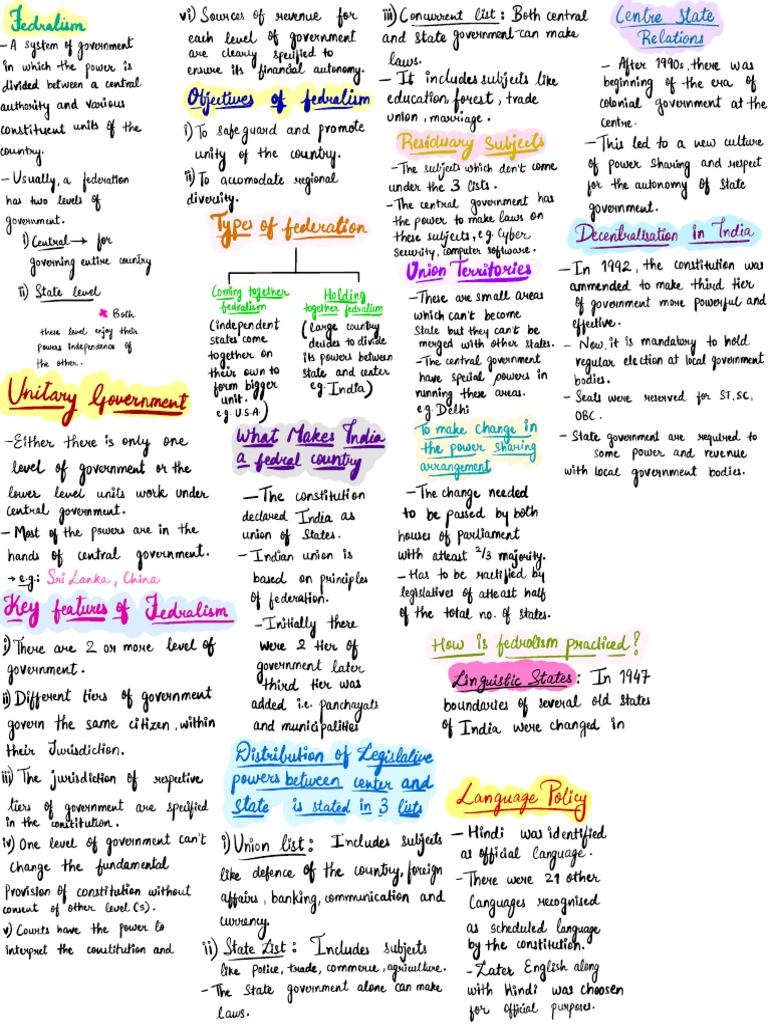 Fedralism
- A system of government
in which the power is
divided between a central
authority and various
constituent units of the
country.
- Usually, a federation
has two levels of
government.
i) Central → for
governing entire country
ii) State level
* Both
these level enjoy their
powers independence of
the other.
Unitary Government
- Either there is only one
level of government or the
lower level units work under
central government.
- Most of the powers are in the
hands of central government.
→ e.g: Sri Lanka, China
Key features of Fedralism
i) There are 2 or more level of
government.
ii) Different tiers of government
govern the same citizen, within
their Jurisdiction.
iii) The jurisdiction of respetive
tiers of government are specified
in the constitution.
iv) One level of government can't
change the fundamental
Provision of constitution without
consent of other level(s).
v) Courts have the power to
interpret the constitution and
vi) Sources of revenue for
each level of government
are clearly specified to
ensure its financial autonomy.
Objectives of fedralism
i) To safe guard and promote
unity of the country.
ii) To accomodate regional
diversity.
Types of federation
Coming together
fedralism
(independent
states come
together on
their own to
form bigger
unit.
e.g U.S.A.)
Holding
together fedralism
(large country
decides to divide
its powers between
state and center
e.g. India)
What Makes India
a fedral country
- The constitution
declared India as
union of States.
- Indian union is
based on principles
of federation.
- Initially there
were 2 tier of
government later
third tier was
added i.e. panchayats
and municipalities
Distribution of Legislative
powers between center and
state is stated in 3 lists
i) Union list: Includes subjects
like defence of the country, foreign
affairs, banking, communication and
currency.
ii) State List: Includes subjects
like Police, trade, commerce, agriculture.
- The State government alone can make
laws.
iii) Concurrent list: Both central
and state government can make
laws.
- It includes subjects like
education, forest, trade
union, marriage.
Residuary Subjects
- The subjects which don't come
under the 3 lists.
- The central government has
the power to make laws on
these subjects, e.g. Cyber
Security, computer software.
Union Territories
- These are small areas
which can't become
state but they can't be
merged with other states.
- The central government
have special powers in
running these areas.
e.g. Delhi
To make change in
the power sharing
arrangement
- The change needed
to be passed by both
houses of Parliament
with atleast 2/3 majority.
- Has to be ractified by
legislatives of atleast half
of the total no. of states.
How is fedrolism practiced?
Linguistic States: In 1947
boundaries of several old states
of India were changed in
Language Policy
- Hindi was identified
as official language.
- There were 21 other
Languages recognised
as scheduled language
by the constitution.
- Later English along
with Hindi was choosen
for official purposes.
Centre State
Relations
- After 1990s, there was
beginning of the era of
colonial government at the
centre.
- This led to a new culture
of power sharing and respect
for the autonomy of State
government.
Decentralisation in India
- In 1992, the constitution was
ammended to make third tier
of government more powerful and
effective.
- Now, it is mandatory to hold
regular election at local government
bodies.
- Seals were reserved for ST, SC,
OBC.
- State government are required to
some power and revenue
with local government bodies.